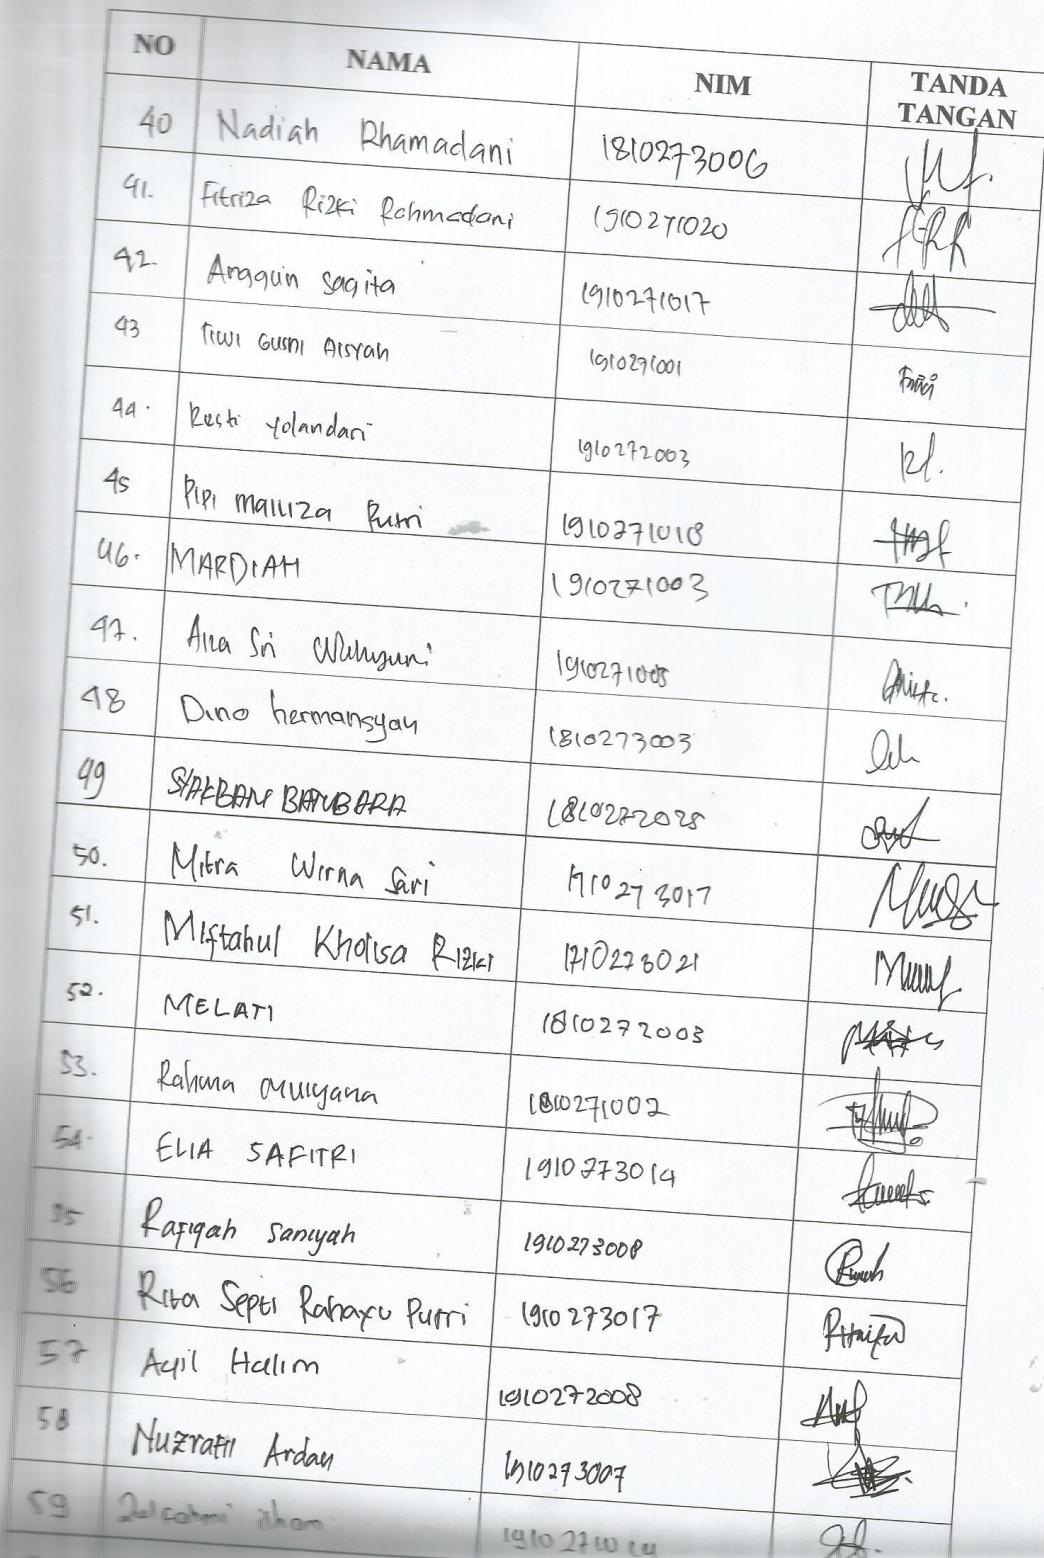 NO NAMA NIM TANDA TANGAN
40 Nadiah Rhamadani 1810273006
41. Fitriza Rizki Rahmadani 1910271020
42 Anggun Sagita 1910271017
43 Tiwi Gusni Aisyah 1910271001
44. Resti Yolandari 1910272003
45 Pipi Mailiza Putri 1910271018
46. MARDIAH 1910271003
47. Sri Wahyuni 1910271005
48 Dino hermansyah 1810273003
49 BATUBARA 1810272025
50. Mitra Wirna Sari 1710273017
51. Miftahul Kholisa Rizki 1710273021
52. MELATI 1810272003
53. Rahma Mulyana 1810271002
54. ELIA SAFITRI 1910273014
55 Rafiqah Saniyah 1910273008
56 Rita Septi Rahayu Putri 1910273017
57 Aqil Halim 1910272008
58 Ardan 1910273007
59